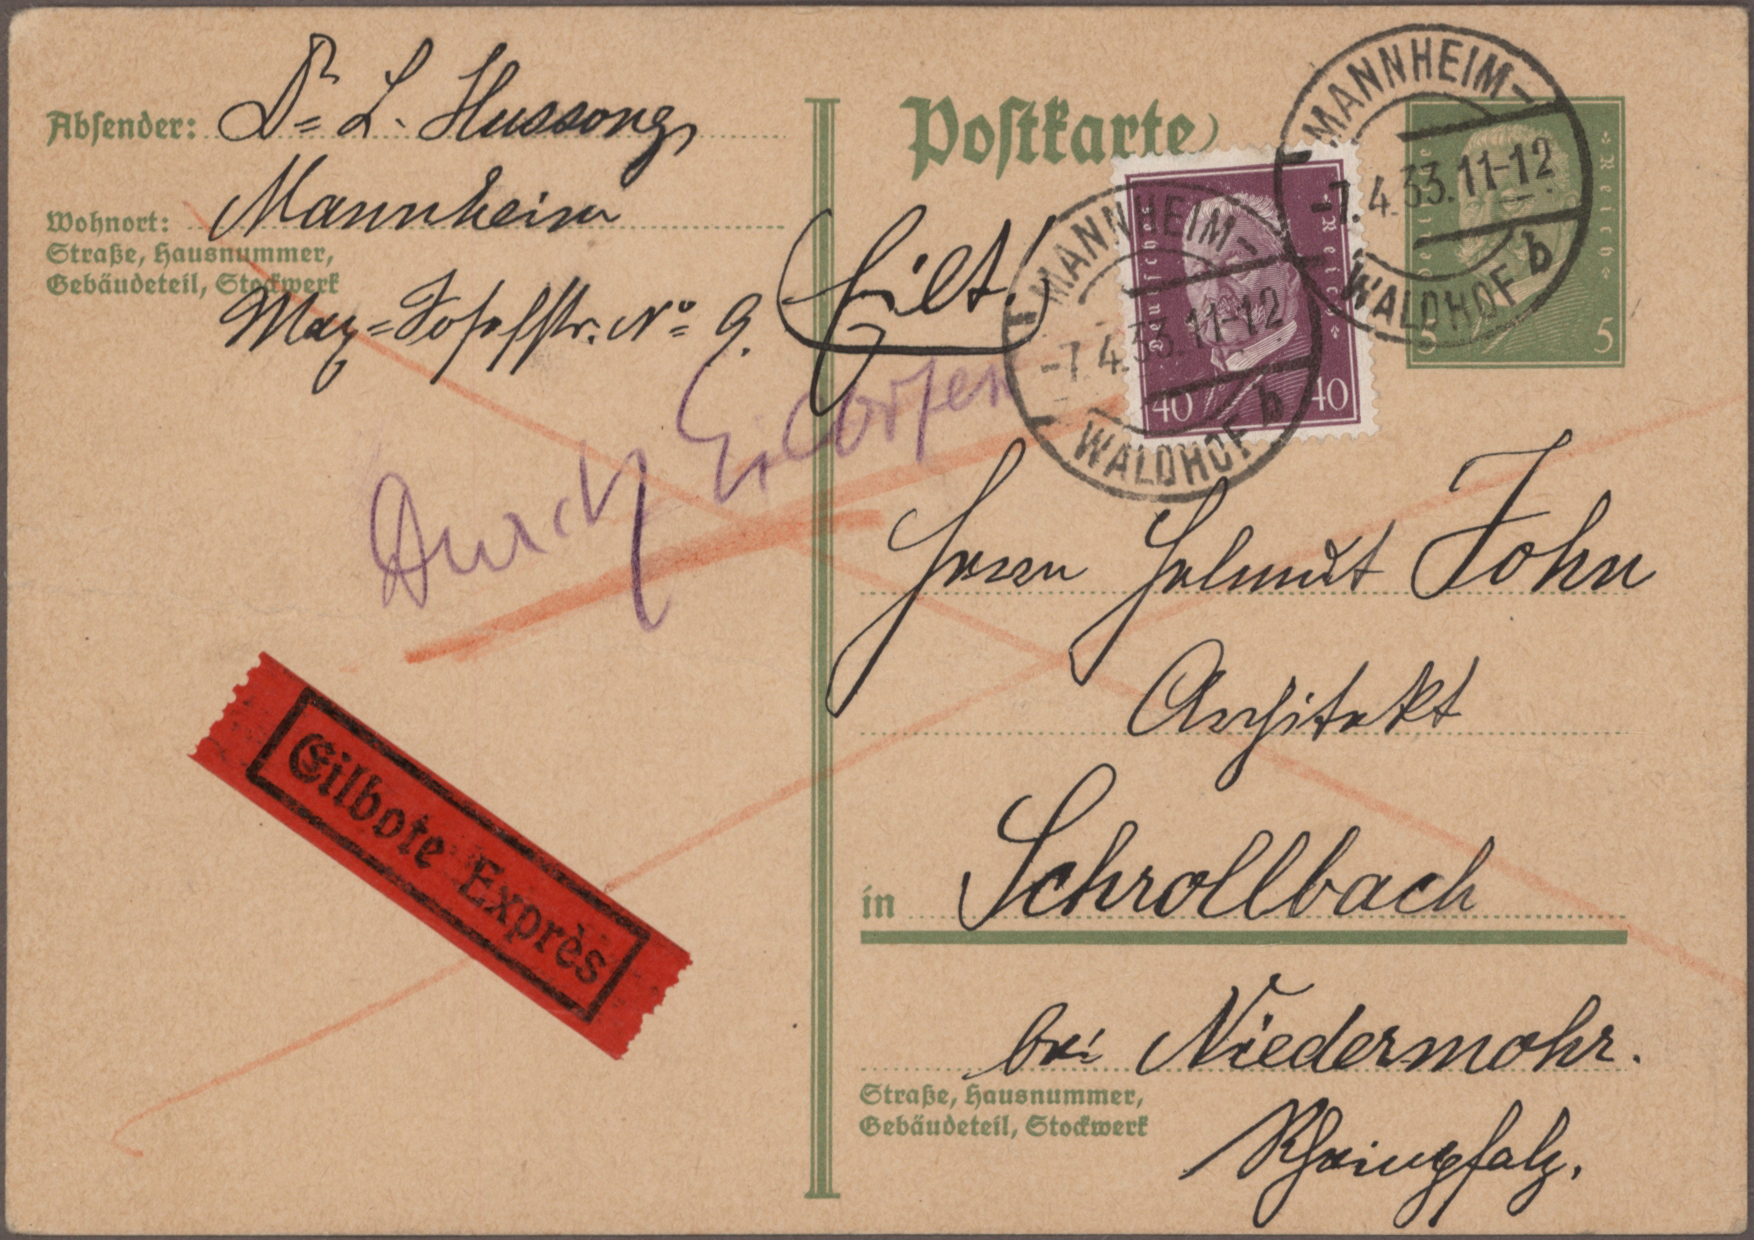 Absender: Dr. L. Hussong,
Wohnort: Mannheim
Straße, Hausnummer,
Gebäudeteil, Stockwerk
Max-Josefstr. No. 9.
Eilt.
Durch Eilboten
Eilbote Exprès
Postkarte
Deutsches Reich
40 40
MANNHEIM-
-7.4.33.11-12
WALDHOF b
Deutsches Reich
5 5
MANNHEIM-
-7.4.33.11-12
WALDHOF b
Herrn Helmut John
Architekt
in Schrollbach
bei Niedermohr.
Straße, Hausnummer,
Gebäudeteil, Stockwerk
Rheinpfalz.